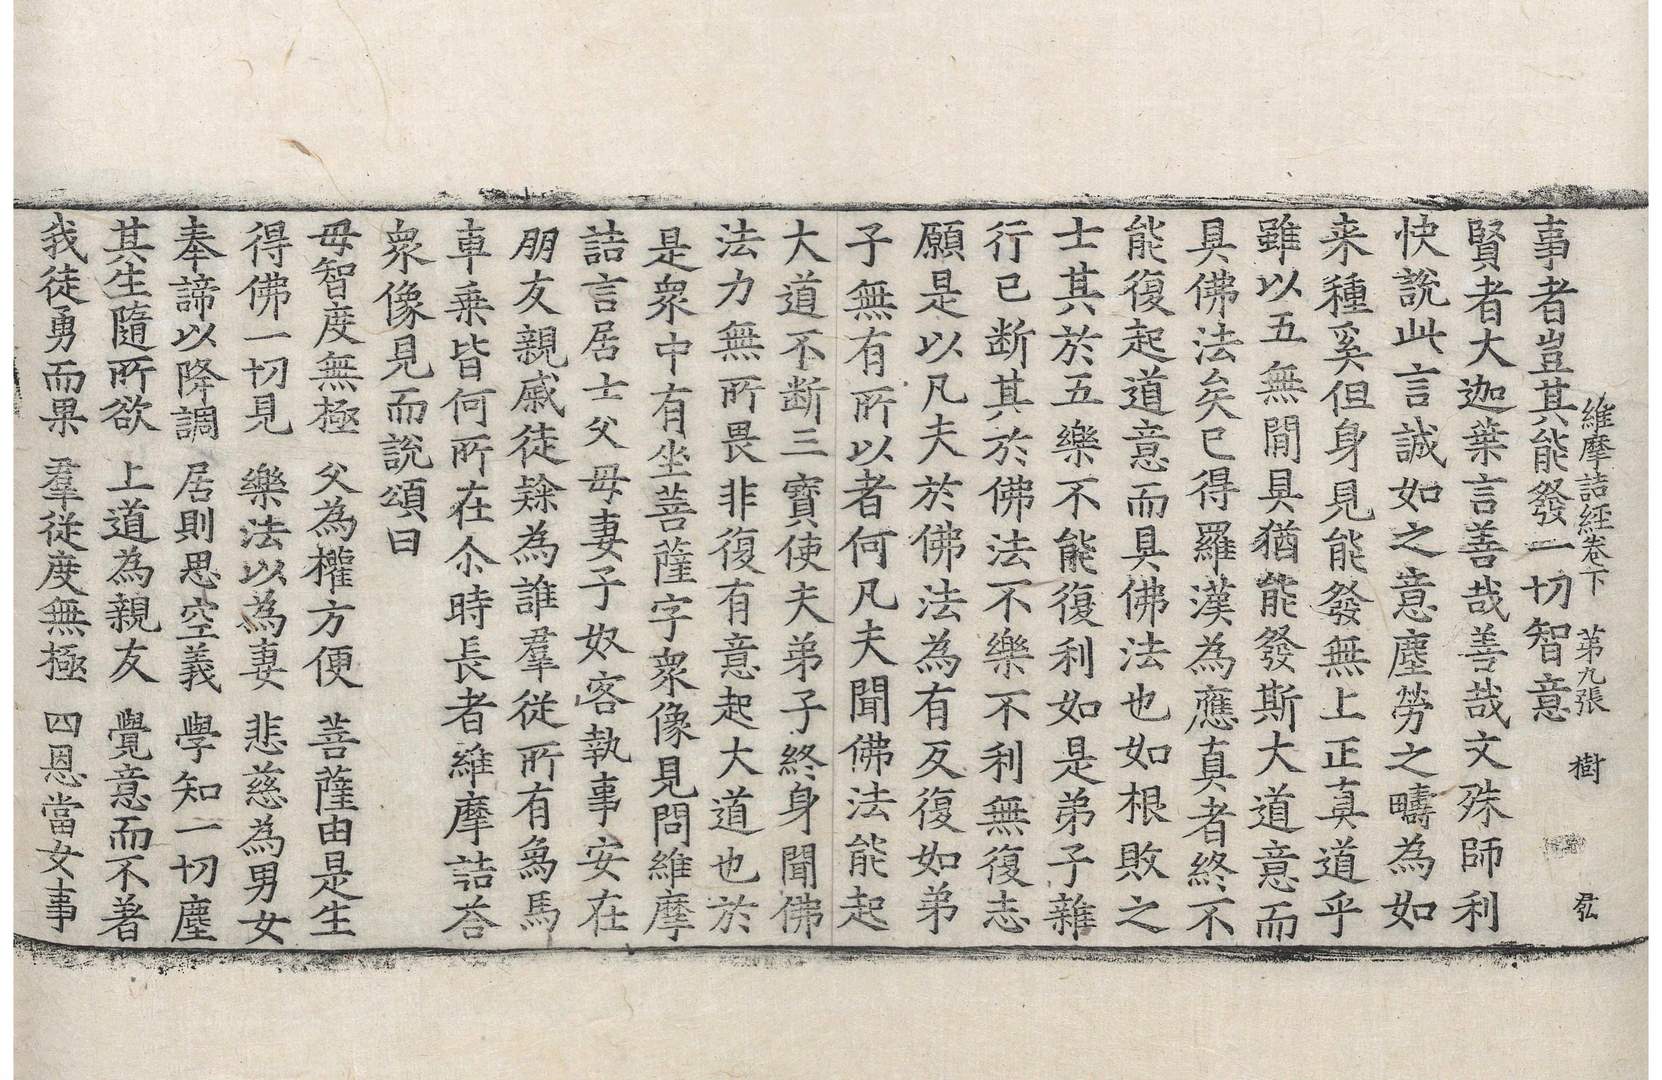 維摩詰經卷下 第九張 樹
事者豈其能發一切智意
賢者大迦葉言善哉善哉文殊師利
快說此言誠如之意塵勞之疇為如
来種奚但身見能發無上正真道乎
雖以五無間具猶能發斯大道意而
具佛法矣已得羅漢為應真者終不
能復起道意而具佛法也如根敗之
士其於五樂不能復利如是弟子雜
行已断其於佛法不樂不利無復志
願是以凡夫於佛法為有反復如弟
子無有所以者何凡夫聞佛法能起
大道不断三寶使夫弟子終身聞佛
法力無所畏非復有意起大道也於
是衆中有坐菩薩字衆像見問維摩
詰言居士父母妻子奴客執事安在
朋友親戚徒隸為誰羣從所有象馬
車乗皆何所在尒時長者維摩詰荅
衆像見而說頌曰
母智度無極 父為權方便 菩薩由是生
得佛一切見 樂法以為妻 悲慈為男女
奉諦以降調 居則思空義 學知一切塵
其生隨所欲 上道為親友 覺意而不著
我徒勇而果 羣從度無極 四恩當女事